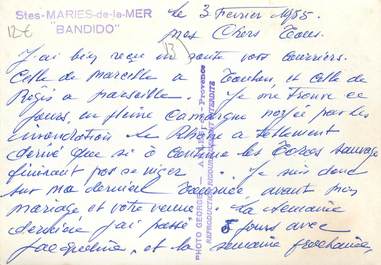 Stes-MARIES-de-la-MER
"BANDIDO"
12€
le 3 Février 1955
mes Chers Tous
13
J'ai bien reçu en route vos courriers.
Celle de Marseille à Toulon et celle de
Régis à Marseille. Je me trouve ce
jours en pleine Camargue noyée par les
innondation. le Rhône a tellement
dérivé que si à continue les Toros sauvage
finiront par se nier. Je suis donc
sur ma dernière Tournée avant mon
mariage et votre venue. La semaine
dernière j'ai passé 5 jours avec
Jacqueline, et la semaine prochaine,
PHOTO GEORGE — Provence
REPRODUCTION INTERDITE